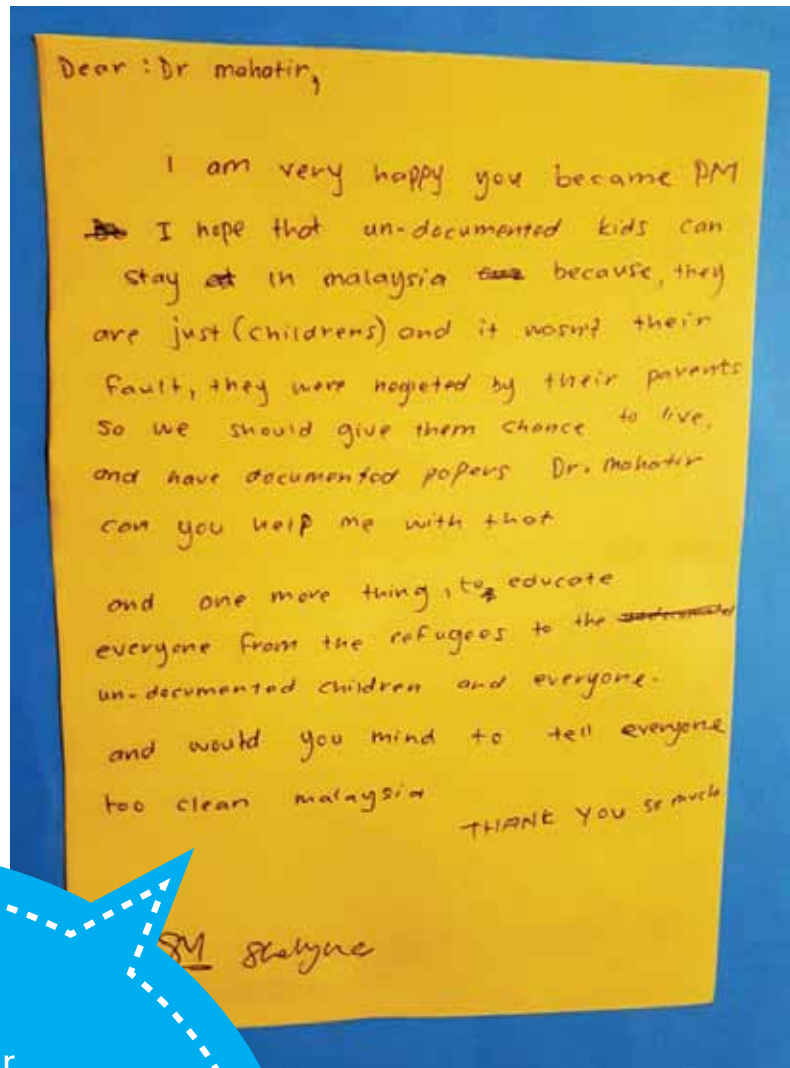 Dear : Dr mahatir,
I am very happy you became PM
I hope that un-documented kids can
stay in malaysia because, they
are just (childrens) and it wasn't their
fault, they were negleted by their parents
So we should give them chance to live,
and have documented papers Dr. Mahatir
can you help me with that
and one more thing, to educate
everyone from the refugees to the
un-documented children and everyone.
and would you mind to tell everyone
too clean malaysia
THANK YOU so much
SM
r